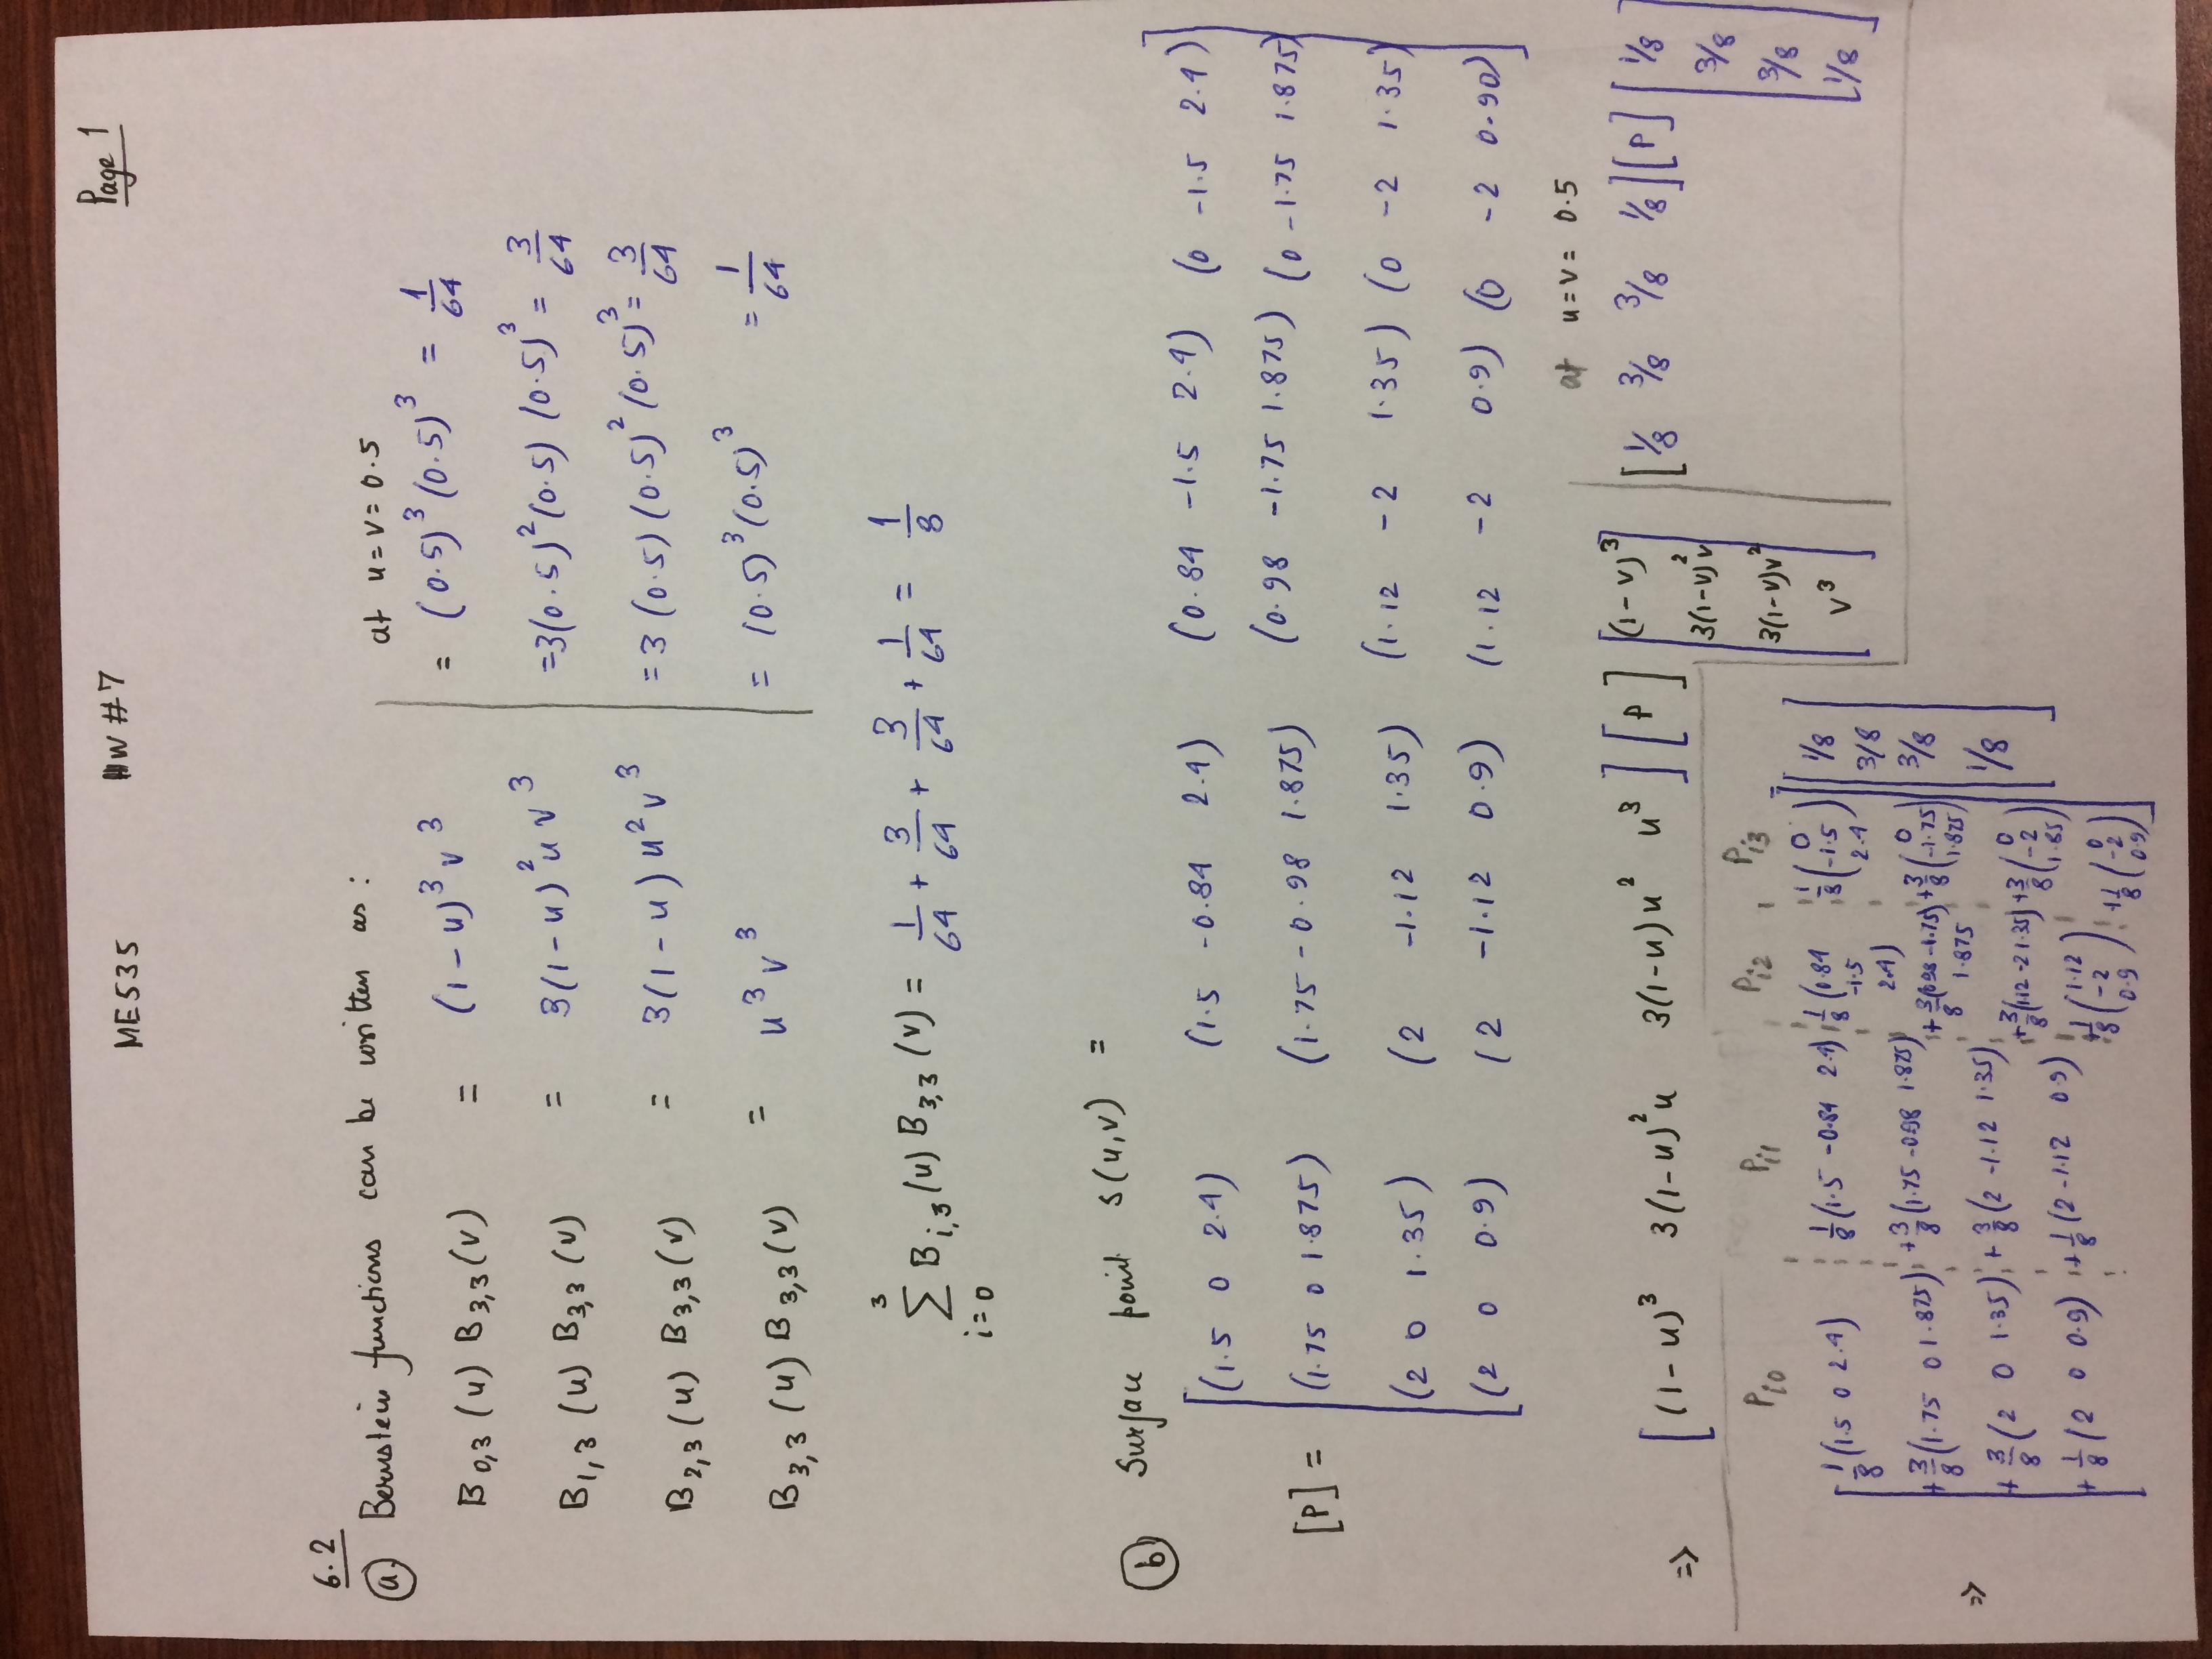 ME535 HW #7 Page 1
6.2
a. Bernstein functions can be written as: at u = v = 0.5
B0,3 (u) B3,3 (v) = (1-u)³ v³ = (0.5)³ (0.5)³ = 1/64
B1,3 (u) B3,3 (v) = 3(1-u)² u v³ = 3(0.5)² (0.5) (0.5)³ = 3/64
B2,3 (u) B3,3 (v) = 3(1-u) u² v³ = 3 (0.5) (0.5)² (0.5)³ = 3/64
B3,3 (u) B3,3 (v) = u³ v³ = (0.5)³ (0.5)³ = 1/64
3
∑ Bi,3 (u) B3,3 (v) = 1/64 + 3/64 + 3/64 + 1/64 = 1/8
i=0
b Surface point S(u,v) =
[(1.5 0 2.4) (1.5 -0.84 2.4) (0.84 -1.5 2.4) (0 -1.5 2.4)]
[P] = (1.75 0 1.875) (1.75 -0.98 1.875) (0.98 -1.75 1.875) (0 -1.75 1.875)
(2 0 1.35) (2 -1.12 1.35) (1.12 -2 1.35) (0 -2 1.35)
(2 0 0.9) (2 -1.12 0.9) (1.12 -2 0.9) (0 -2 0.90)
at u = v = 0.5
⇒ [(1-u)³ 3(1-u)²u 3(1-u)u² u³] [P] [(1-v)³ [1/8 3/8 3/8 1/8] [P] [1/8
3(1-v)²v 3/8
3(1-v)v² 3/8
v³] 1/8]
Pi0 Pi1 Pi2 Pi3
[1/8 (1.5 0 2.4) 1/8 (1.5 -0.84 2.4) 1/8 (0.84 -1.5 2.4) 1/8 (0 -1.5 2.4)] [1/8
+ 3/8 (1.75 0 1.875) + 3/8 (1.75 -0.98 1.875) + 3/8 (0.98 -1.75 1.875) + 3/8 (0 -1.75 1.875) 3/8
⇒ + 3/8 (2 0 1.35) + 3/8 (2 -1.12 1.35) + 3/8 (1.12 -2 1.35) + 3/8 (0 -2 1.35) 3/8
+ 1/8 (2 0 0.9) + 1/8 (2 -1.12 0.9) + 1/8 (1.12 -2 0.9) + 1/8 (0 -2 0.9)] 1/8]